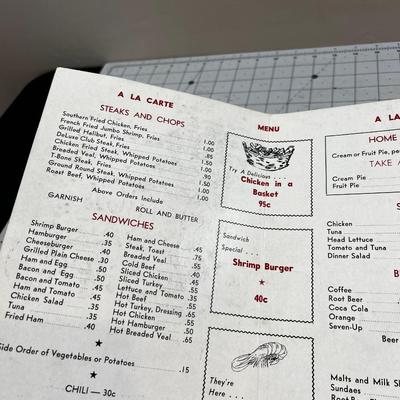 A LA CARTE
STEAKS AND CHOPS
Southern Fried Chicken, Fries 1.00
French Fried Jumbo Shrimp, Fries 1.00
Grilled Halibut, Fries .85
DeLuxe Club Steak, Fries
Chicken Fried Steak, Whipped Potatoes
Breaded Veal, Whipped Potatoes
T-Bone Steak, Fries
Ground Round Steak, Whipped Potatoes
Roast Beef, Whipped Potatoes 1.00
Above Orders Include
GARNISH ROLL AND BUTTER
SANDWICHES
Shrimp Burger .40
Hamburger .35
Cheeseburger .40
Grilled Plain Cheese .30
Ham and Egg .50
Bacon and Egg .50
Bacon and Tomato .50
Ham and Tomato .45
Chicken Salad .35
Tuna .35
Fried Ham .40
Ham and Cheese .45
Steak, Toast .75
Breaded Veal .55
Cold Beef .50
Sliced Chicken .45
Sliced Turkey .50
Lettuce and Tomato .35
Hot Beef .65
Hot Turkey, Dressing .65
Hot Chicken .55
Hot Hamburger .50
Hot Breaded Veal .65
Side Order of Vegetables or Potatoes .15
CHILI — 30c
MENU
Try A Delicious . . .
Chicken in a
Basket
95c
Sandwich
Special . . .
Shrimp Burger
40c
They're
Here . . .
A LA
HOME
Cream or Fruit Pie, pe
TAKE
Cream Pie
Fruit Pie
S
Chicken
Tuna
Head Lettuce
Tomato and Tuna
Dinner Salad
Coffee
Root Beer
Coca Cola
Orange
Seven-Up
Beer
Malts and Milk
Sundaes